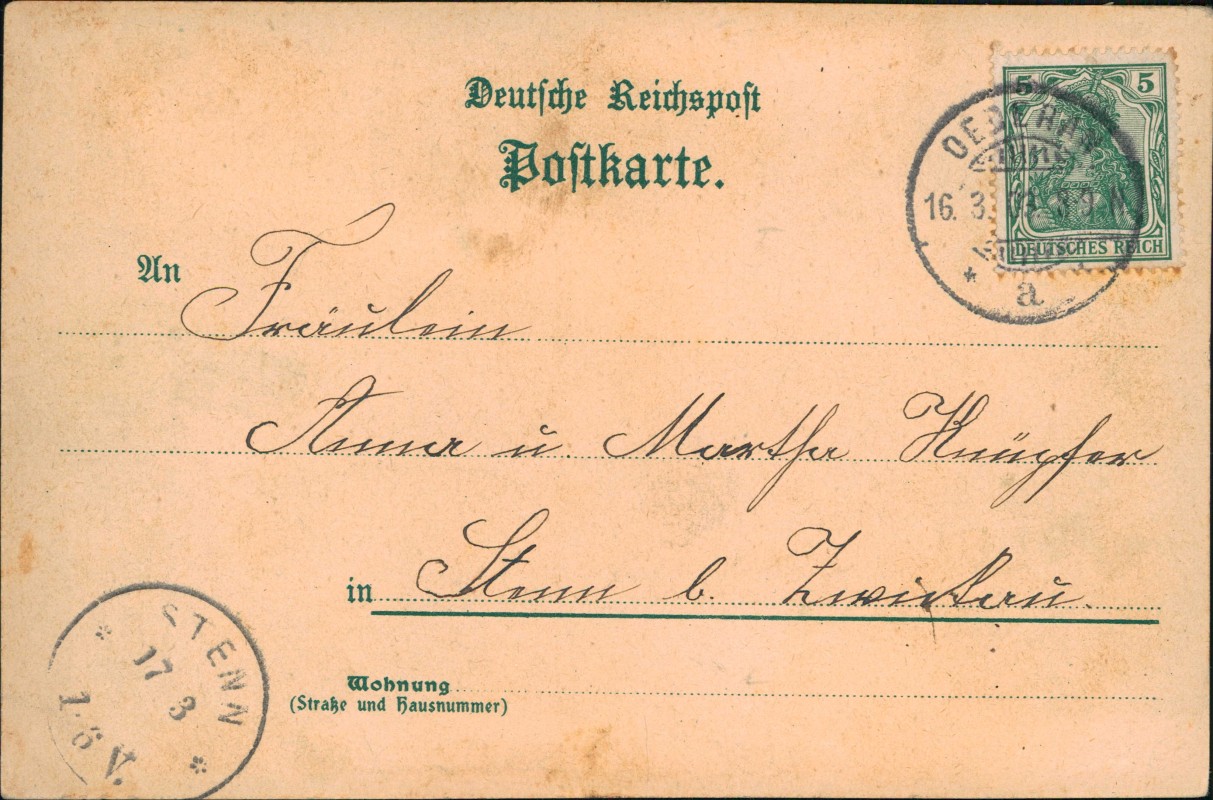 Deutsche Reichspost
Postkarte.
5 5
DEUTSCHES REICH
OEDERAN
16. 3. 03. 8-9 N
* a
An Fräulein
Anna u. Martha Knüpfer
in Stenn b. Zwickau.
Wohnung
(Straße und Hausnummer)
* STENN *
17 3
V.